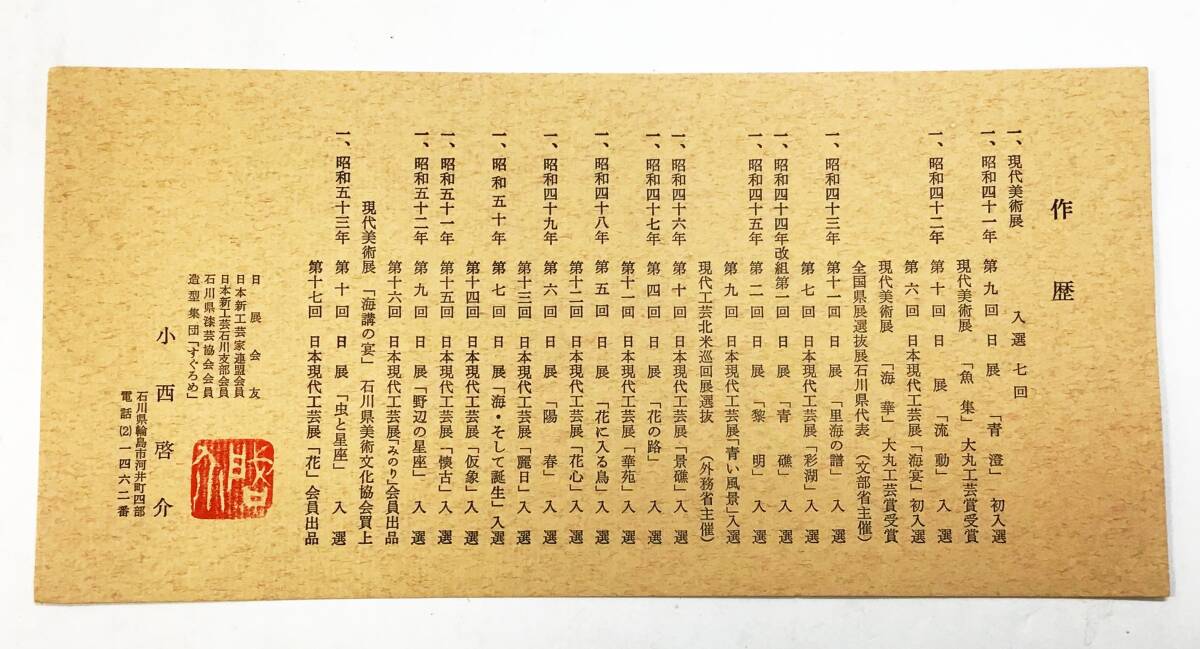 作歴
一、現代美術展 入選七回
一、昭和四十一年 第九回 日展 「青澄」 初入選
現代美術展 「魚集」 大丸工芸賞受賞
一、昭和四十二年 第十回 日展 「流動」 入選
第六回 日本現代工芸展「海宴」 初入選
現代美術展 「海華」 大丸工芸賞受賞
全国県展選抜展石川県代表 (文部省主催)
一、昭和四十三年 第十一回 日展 「里海の譜」 入選
第七回 日本現代工芸展「彩湖」 入選
一、昭和四十四年改組第一回 日展 「青礁」 入選
一、昭和四十五年 第二回 日展 「黎明」 入選
第九回 日本現代工芸展「青い風景」入選
現代工芸北米巡回展選抜 (外務省主催)
一、昭和四十六年 第十回 日本現代工芸展「景礁」入選
一、昭和四十七年 第四回 日展 「花の路」 入選
第十一回 日本現代工芸展「華苑」 入選
一、昭和四十八年 第五回 日展 「花に入る鳥」 入選
第十二回 日本現代工芸展「花心」 入選
一、昭和四十九年 第六回 日展 「陽春」 入選
第十三回 日本現代工芸展「麗日」 入選
一、昭和五十年 第七回 日展 「海・そして誕生」入選
第十四回 日本現代工芸展「仮象」 入選
一、昭和五十一年 第十五回 日本現代工芸展「懐古」 入選
一、昭和五十二年 第九回 日展 「野辺の星座」 入選
第十六回 日本現代工芸展「みのり」会員出品
現代美術展 「海講の宴」 石川県美術文化協会買上
一、昭和五十三年 第十回 日展 「虫と星座」 入選
第十七回 日本現代工芸展「花」会員出品
日展会友
日本新工芸家連盟会員
日本新工芸石川支部会員
石川県漆芸協会会員
造型集団「すぐろめ」
小西啓介
石川県輪島市河井町四部
電話(2)一四六二番